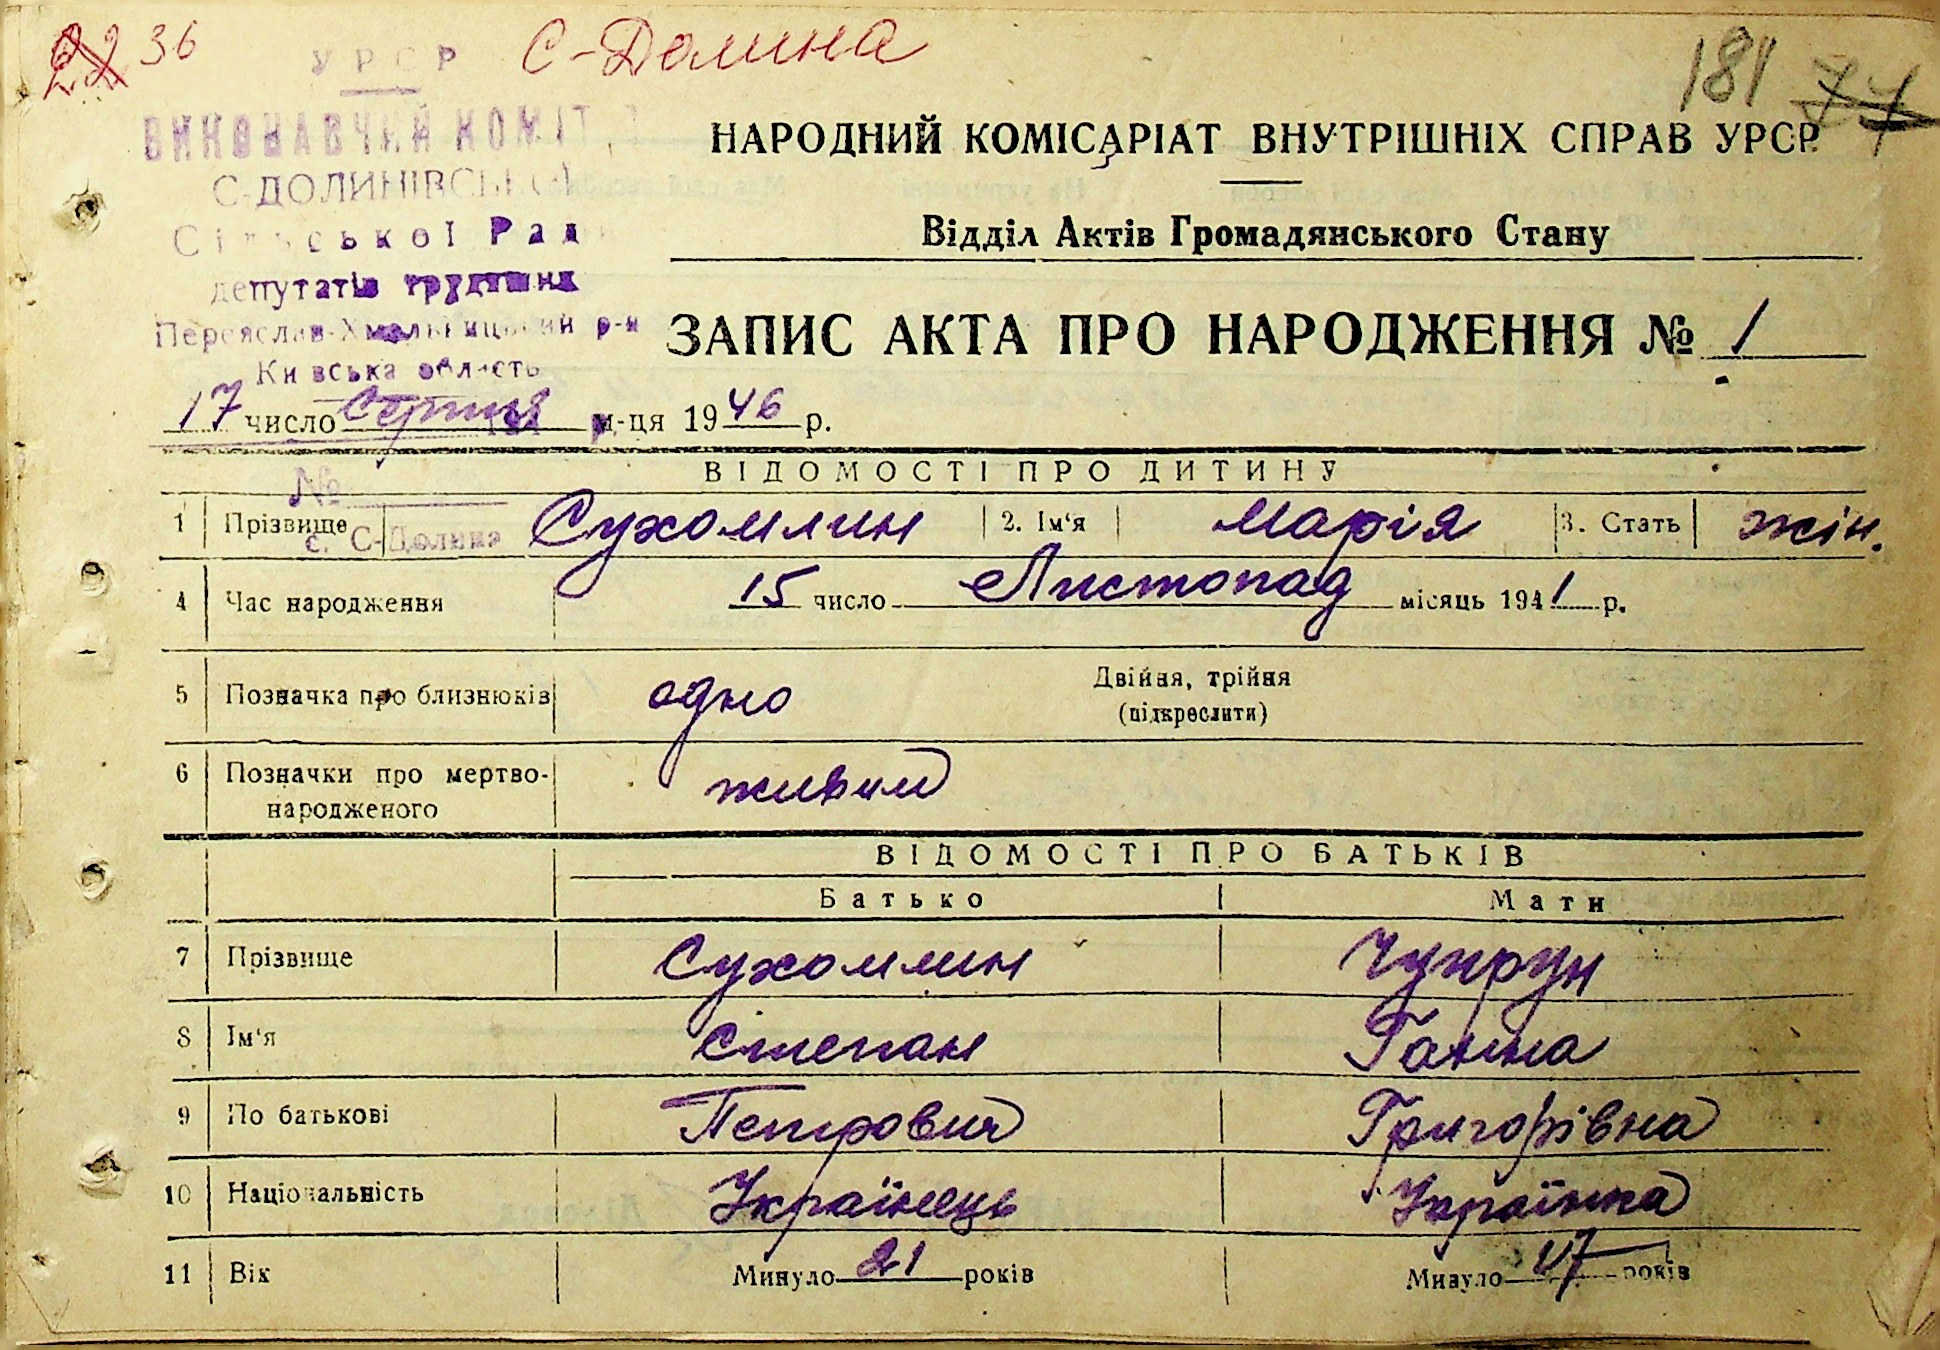 22 36 С-Долина 181 77
УРСР
ВИКОНАВЧИЙ КОМІТ
С-ДОЛИНІВСЬК
Сільської Рад
депутатів трудящих
Переяслав-Хмельницький р-н
Київська область
НАРОДНИЙ КОМІСАРІАТ ВНУТРІШНІХ СПРАВ УРСР
Відділ Актів Громадянського Стану
ЗАПИС АКТА ПРО НАРОДЖЕННЯ № 1
17 число Серпня м-ця 1946 р.
№
с. С-Долина
ВІДОМОСТІ ПРО ДИТИНУ
1 Прізвище Сухомлин 2. Ім‘я Марія 3. Стать жін.
4 Час народження 15 число Листопад місяць 1941 р.
5 Позначка про близнюків одно Двійня, трійня
(підкреслити)
6 Позначки про мертво-
народженого живим
ВІДОМОСТІ ПРО БАТЬКІВ
Батько Мати
7 Прізвище Сухомлин Чупрун
8 Ім‘я Степан Ганна
9 По батькові Петрович Григорівна
10 Національність Українець Українка
11 Вік Минуло 21 років Минуло 17 років